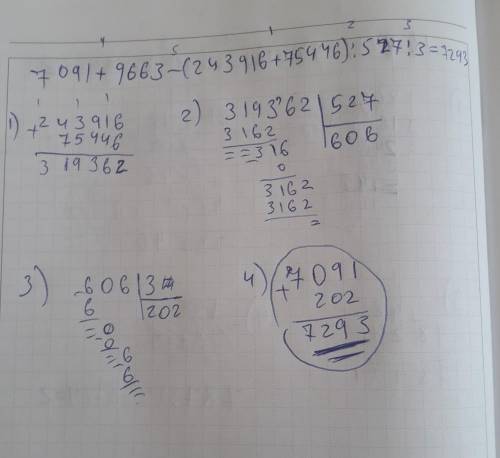 4 5 1 2 3
7091 + 9663 - (243916 + 75446) : 527 : 3 = 7293
1 1 1
1) + 243916
75446
319362
2) 319362 | 527
3162 | 606
= = 316
0
3162
3162
=
3) - 606 | 3
6 | 202
= 0
0
= 6
6
=
4) + 7091
202
7293